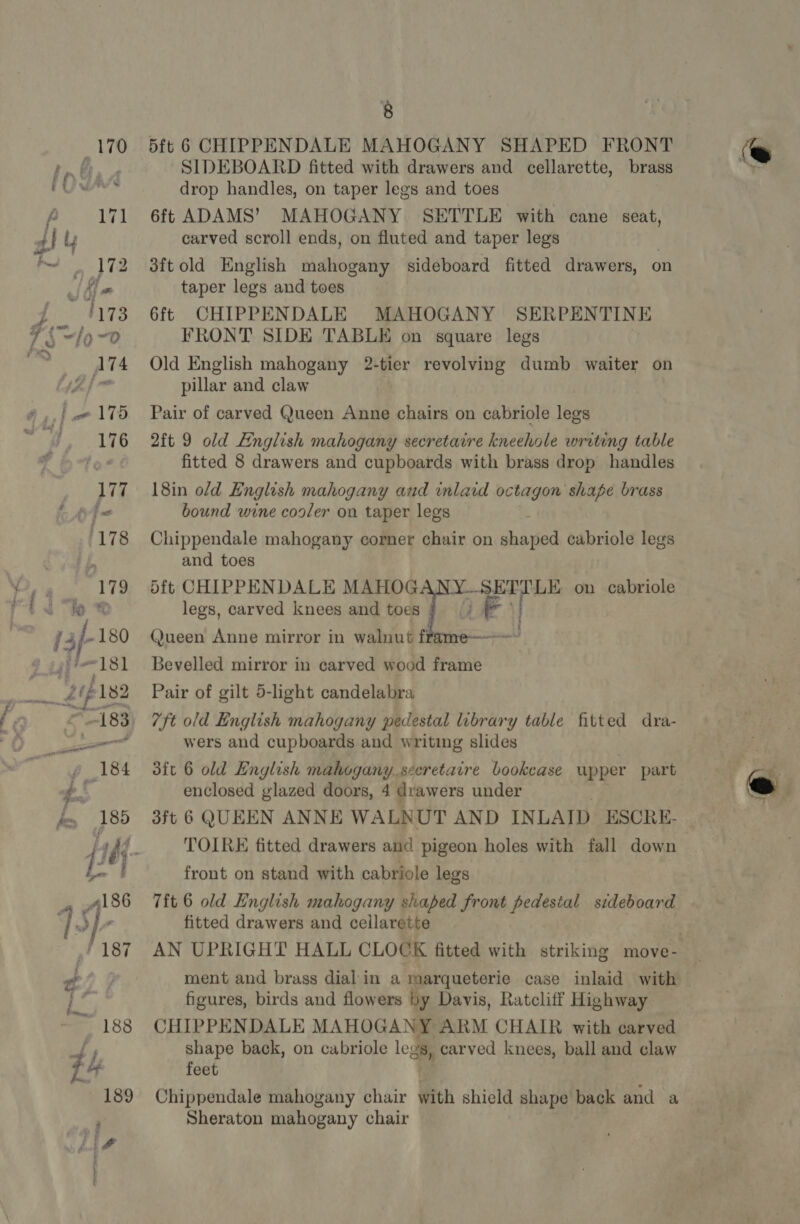 8
170 5ft 6 CHIPPENDALE MAHOGANY SHAPED FRONT
SIDEBOARD fitted with drawers and cellarette, brass
drop handles, on taper legs and toes
171 6ft ADAMS' MAHOGANY SETTLE with cane seat,
carved scroll ends, on fluted and taper legs
172 3ft old English mahogany sideboard fitted drawers, on
taper legs and toes
173 6ft CHIPPENDALE MAHOGANY SERPENTINE
FRONT SIDE TABLE on square legs
174 Old English mahogany 2-tier revolving dumb waiter on
pillar and claw
175 Pair of carved Queen Anne chairs on cabriole legs
176 2ft 9 old English mahogany secretaire kneehole writing table
fitted 8 drawers and cupboards with brass drop handles
177 18in old English mahogany and inlaid octagon shape brass
bound wine cooler on taper legs
178 Chippendale mahogany corner chair on shaped cabriole legs
and toes
179 5ft CHIPPENDALE MAHOGANY SETTLE on cabriole
legs, carved knees and toes
180 Queen Anne mirror in walnut frame
181 Bevelled mirror in carved wood frame
182 Pair of gilt 5-light candelabra
183 7ft old English mahogany pedestal library table fitted dra-
wers and cupboards and writing slides
184 3ft 6 old English mahogany secretaire bookcase upper part
enclosed glazed doors, 4 drawers under
185 3ft 6 QUEEN ANNE WALNUT AND INLAID ESCRE-
TOIRE fitted drawers and pigeon holes with fall down
front on stand with cabriole legs
186 7ft 6 old English mahogany shaped front pedestal sideboard
fitted drawers and cellarette
187 AN UPRIGHT HALL CLOCK fitted with striking move-
ment and brass dial in a marqueterie case inlaid with
figures, birds and flowers by Davis, Ratcliff Highway
188 CHIPPENDALE MAHOGANY ARM CHAIR with carved
shape back, on cabriole legs, carved knees, ball and claw
feet
189 Chippendale mahogany chair with shield shape back and a
Sheraton mahogany chair